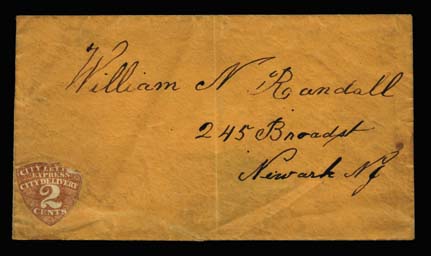 William N Randall
245 Broadst
Newark NJ
CITY
EXPRESS
CITY DELIVERY
2
CENTS